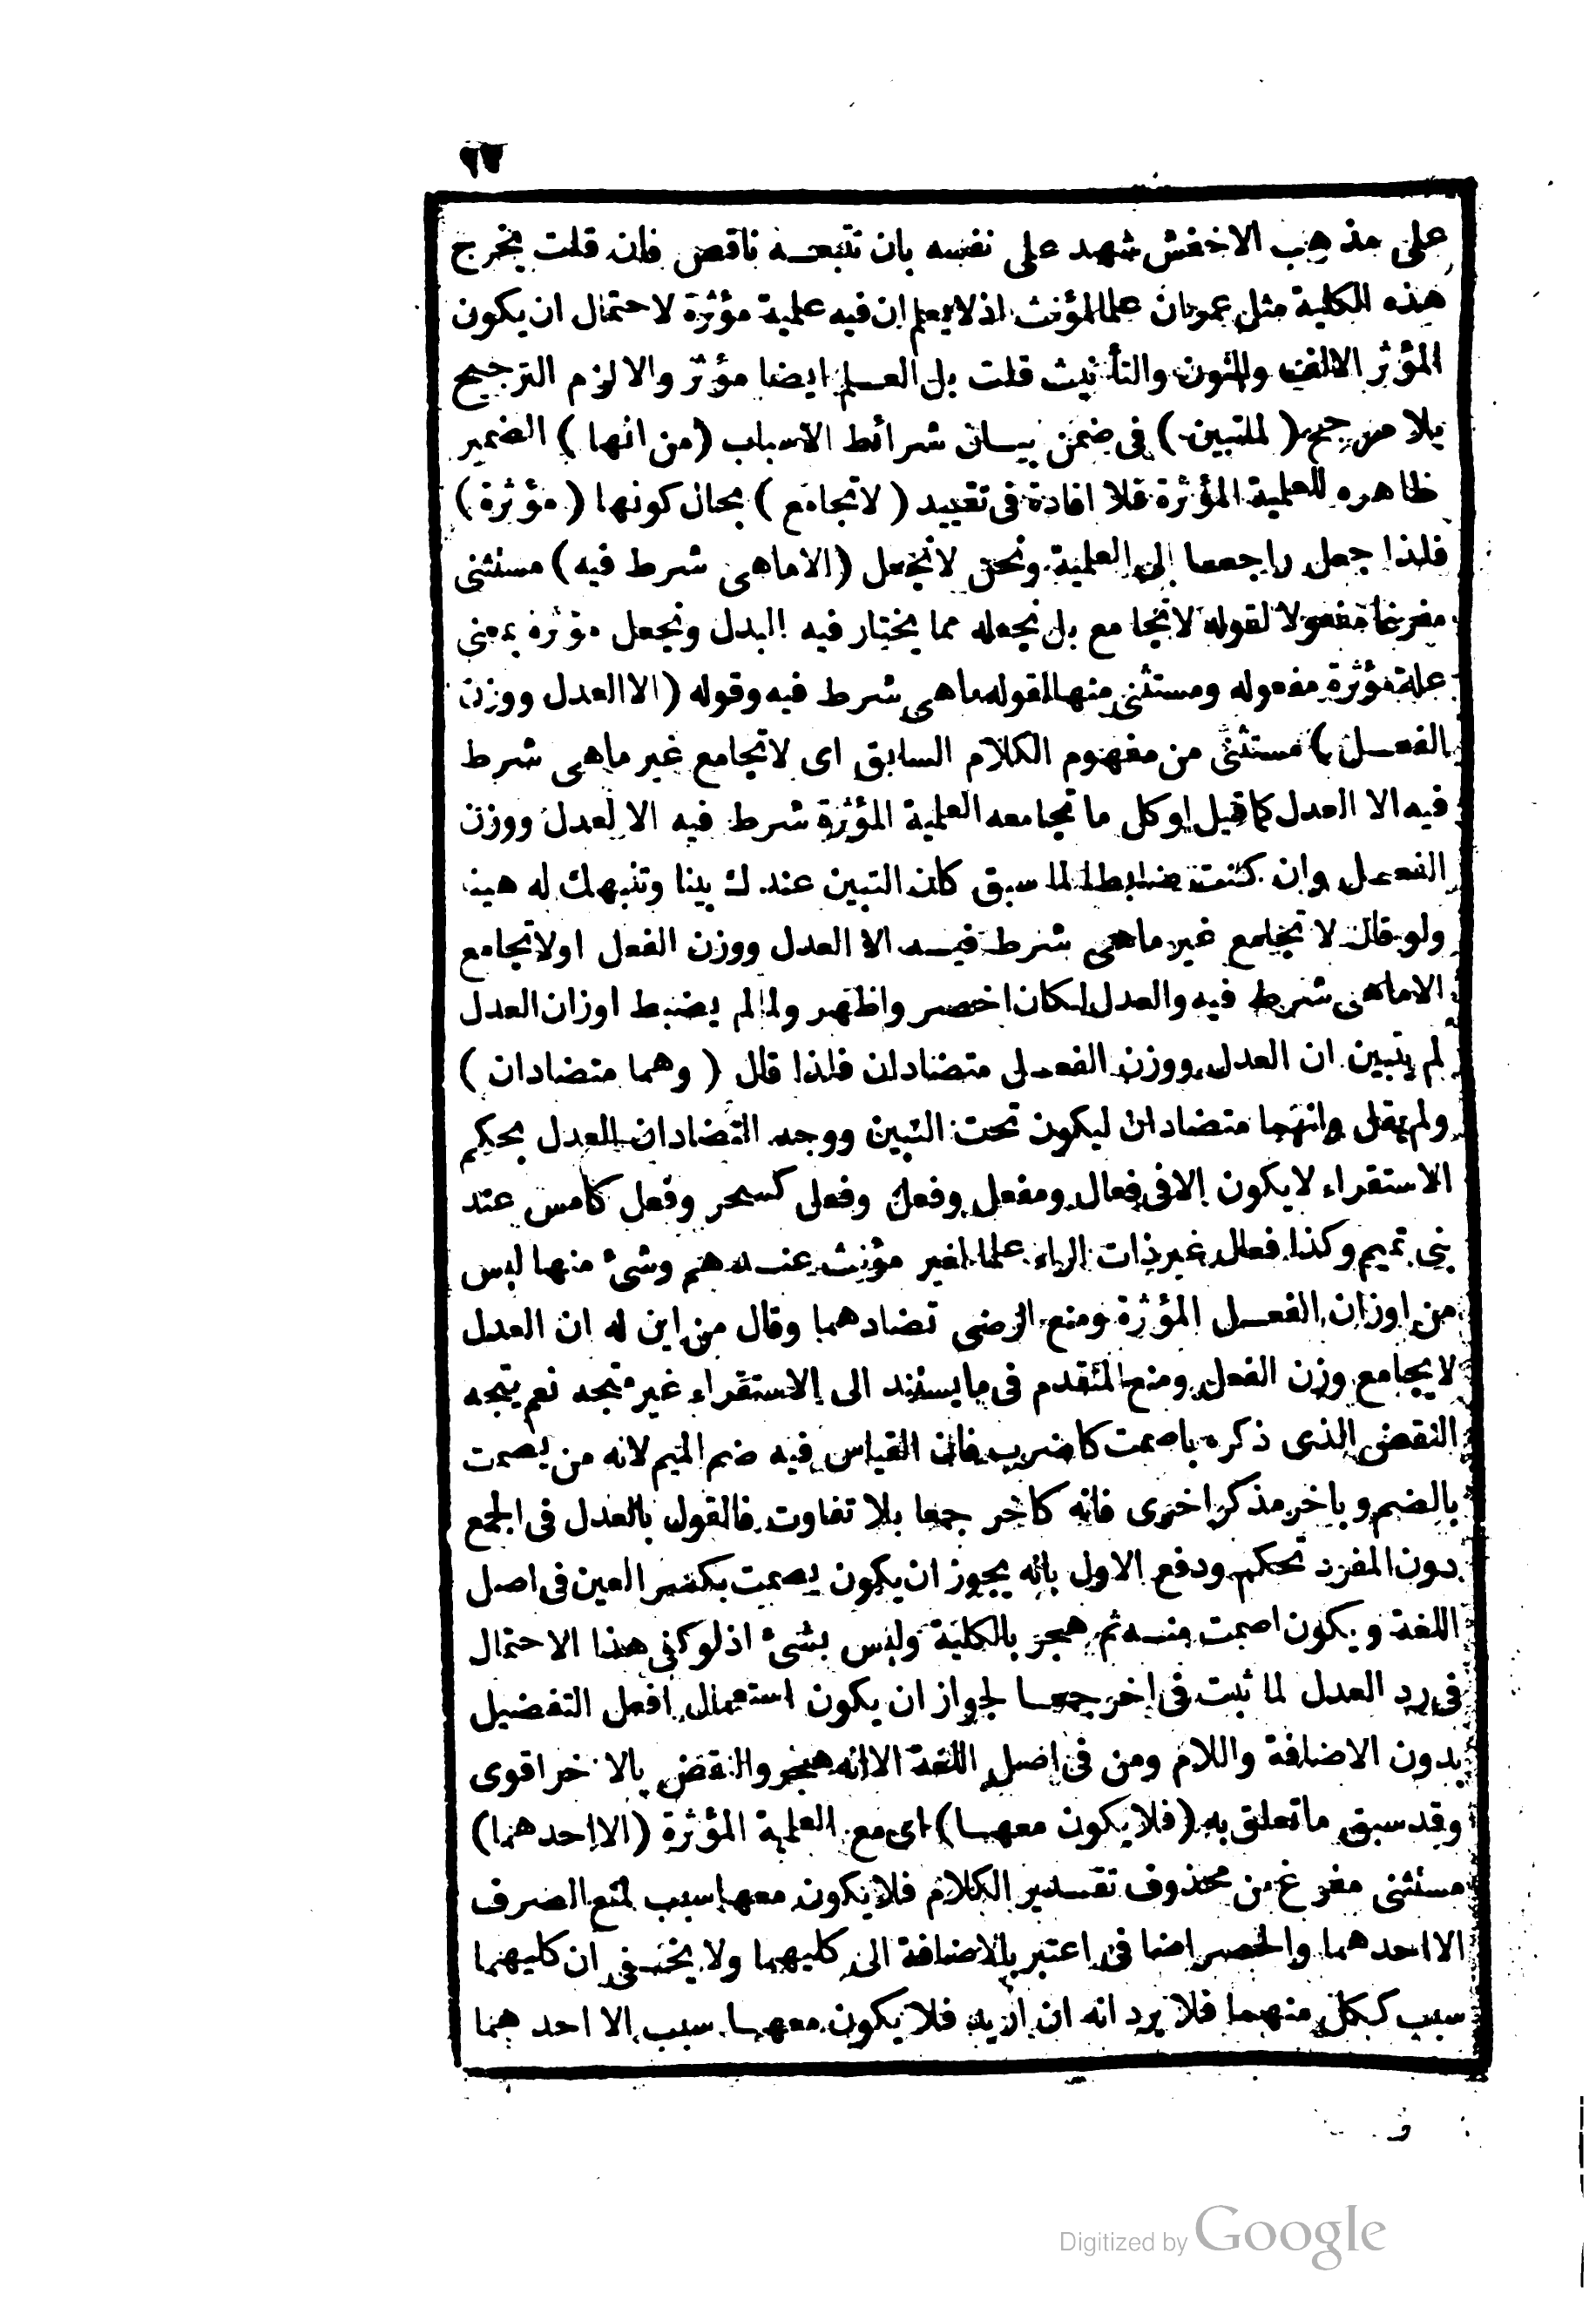 ٩٧
على مذهب الاخفش شهد على نفسه بان تتبعه ناقص فان قلت يخرج
هذه الكلية مثل عمران علما لمؤنث اذ لا يعلم ان فيه علمية مؤثرة لاحتمال ان يكون
المؤثر الالف والنون والتأنيث قلت بل العلم ايضا مؤثر والا لزم الترجيح
بلا مرجح ( لما تبين ) فى ضمن بيان شرائط الاسباب ( من انها ) الضمير
ظاهره للعلمية المؤثرة فلا افادة فى تقييد ( لا تجامع ) بحال كونها ( مؤثرة )
فلذا جعل راجعا الى العلمية ونحن لا نجعل ( الا ماهى شرط فيه ) مستثنى
مفرغا مفعولا لقوله لا تجامع بل نجعله مما يختار فيه البدل ونجعل مؤثرة بمعنى
علة مؤثرة مفعوله ومستثنى منها لقوله ماهى شرط فيه وقوله ( الا العدل ووزن
الفعل ) مستثنى من مفهوم الكلام السابق اى لا تجامع غير ماهى شرط
فيه الا العدل كما قيل او كل ما تجامعه العلمية المؤثرة شرط فيه الا لعدل ووزن
الفعل وان كنت ضابطا لما سبق كان التبين عندك بينا وتنبهك له هينا
ولو قال لا تجامع غير ماهى شرط فيه الا العدل ووزن الفعل او لا تجامع
الا ماهى شرط فيه والعدل لكان اخصر واظهر ولما لم يضبط اوزان العدل
لم يتبين ان العدل ووزن الفعل متضادان فلذا قال ( وهما متضادان )
ولم يقل وانهما متضادان ليكون تحت التبين ووجه التضادان العدل بحكم
الاستقراء لا يكون الا فى فعال ومفعل وفعل وفعل كسحر وفعل كامس عند
بنى تميم وكذا فعال غير ذات الراء علما لغير مؤنث عندهم وشئ منها ليس
من اوزان الفعل المؤثرة ومنع الرضى تضادهما وقال من اين له ان العدل
لا يجامع وزن الفعل ومنع المقدم فى ما يستند الى الاستقراء غير متجه نعم يتجه
النقض الذى ذكره باصمت كاضرب فان القياس فيه ضم الميم لانه من يصمت
بالضم وباخر مذكر اخرى فانه كاخر جمعا بلا تفاوت فالقول بالعدل فى الجمع
دون المفرد تحكم ودفع الاول بانه يجوز ان يكون يصمت بكسر العين فى اصل
اللغة ويكون اصمت منه ثم هجر بالكلية وليس بشئ اذ لو كفى هذا الاحتمال
فى رد العدل لما ثبت فى اخر جمعا لجواز ان يكون استعمال افعل التفضيل
بدون الاضافة واللام ومن فى اصل اللغة الا انه هجر والنقض بالاخر اقوى
وقد سبق ما تعلق به ( فلا يكون معها ) اى مع العلمية المؤثرة ( الا احدهما )
مستثنى مفرغ من محذوف تقدير الكلام فلا يكون معها سبب لمنع الصرف
الا احدهما والحصر اضافى اعتبر بالاضافة الى كليهما ولا يخفى ان كليهما
سبب ككل منهما فلا يرد انه ان اريد فلا يكون معها سبب الا احدهما
Digitized by Google